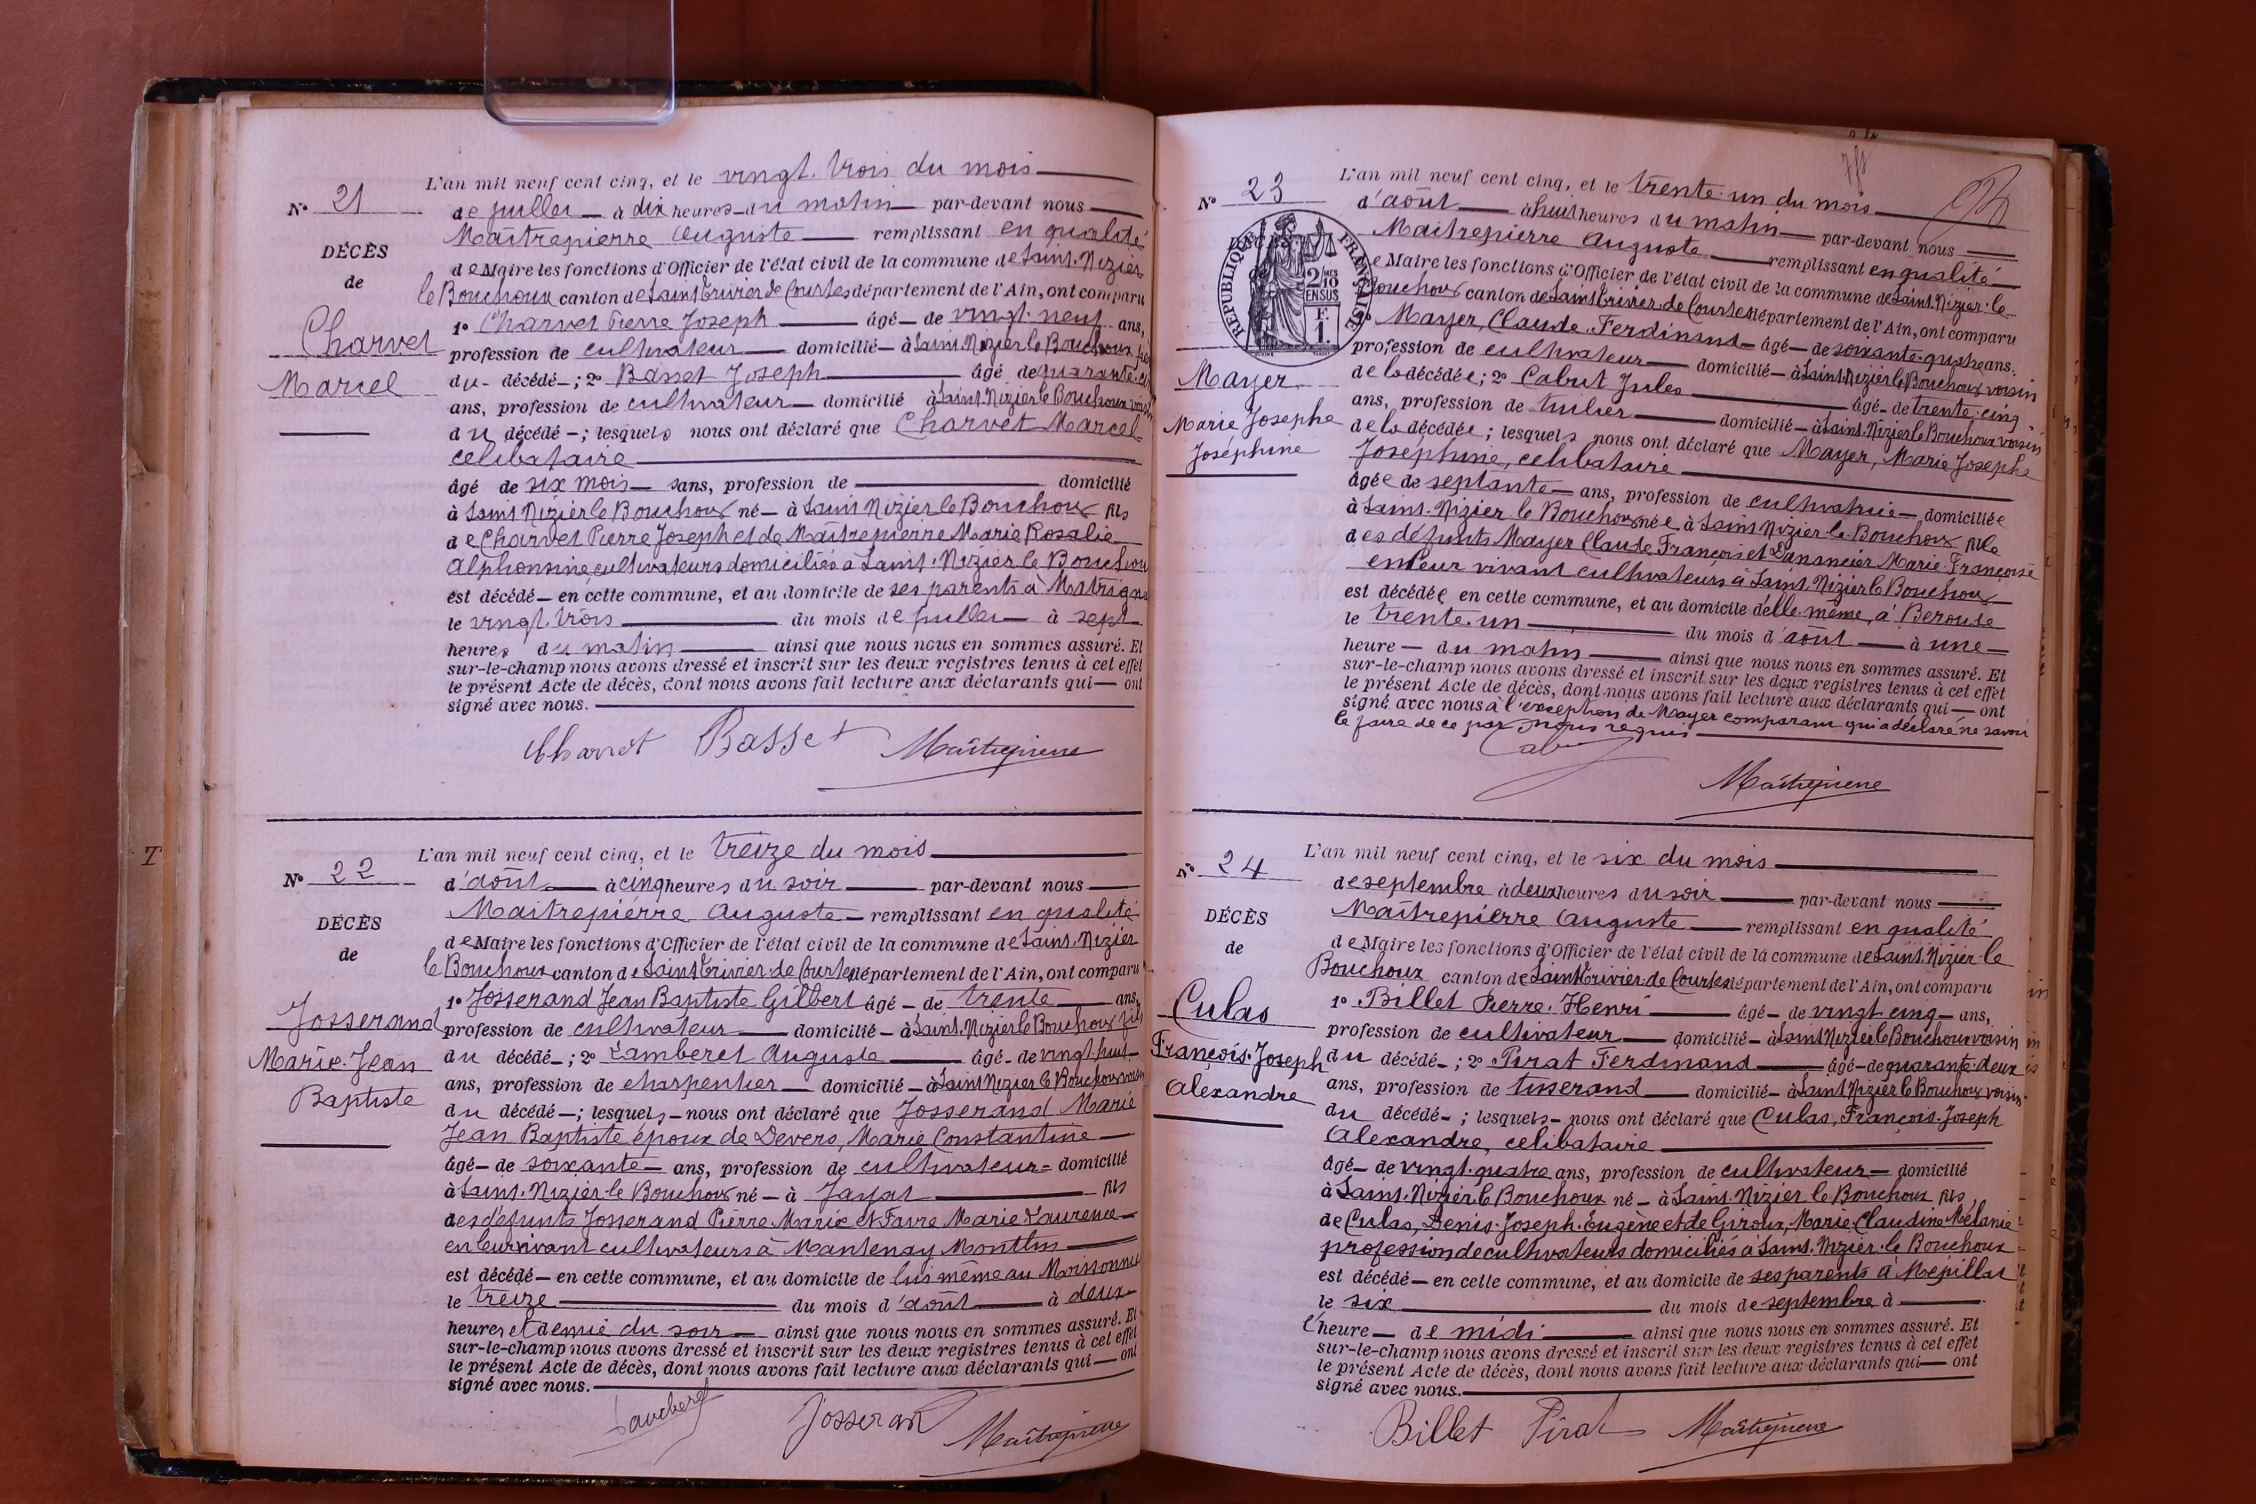 L'an mil neuf cent cinq, et le vingt-trois du mois
N° 21
de juillet à dix heures du matin par-devant nous
Maîtrepierre Auguste remplissant en qualité
DÉCÈS
de Maire les fonctions d'Officier de l'état civil de la commune de Saint-Nizier
de
le Bouchoux canton de Saint Trivier de Courtes département de l'Ain, ont comparu
1° Charvet Pierre Joseph âgé de vingt-neuf ans,
Charvet
profession de cultivateur domicilié à Saint-Nizier le Bouchoux père
Marcel
du décédé; 2° Basset Joseph âgé de quarante
ans, profession de cultivateur domicilié à Saint-Nizier le Bouchoux voisin
du décédé; lesquels nous ont déclaré que Charvet Marcel
célibataire
âgé de six mois sans, profession de domicilié
à Saint Nizier le Bouchoux né à Saint Nizier le Bouchoux fils
de Charvet Pierre Joseph et de Maîtrepierre Marie Rosalie
Alphonsine cultivateurs domiciliés à Saint-Nizier le Bouchoux
est décédé en cette commune, et au domicile de ses parents à
le vingt-trois du mois de juillet à sept
heures du matin ainsi que nous nous en sommes assuré. Et
sur-le-champ nous avons dressé et inscrit sur les deux registres tenus à cet effet
le présent Acte de décès, dont nous avons fait lecture aux déclarants qui ont
signé avec nous.
Charvet Basset Maîtrepierre
L'an mil neuf cent cinq, et le treize du mois
N° 22
d'août à cinq heures du soir par-devant nous
Maîtrepierre Auguste remplissant en qualité
DÉCÈS
de Maire les fonctions d'Officier de l'état civil de la commune de Saint-Nizier
de
le Bouchoux canton de Saint Trivier de Courtes département de l'Ain, ont comparu
1° Josserand Jean Baptiste Gilbert âgé de trente ans,
Josserand
profession de cultivateur domicilié à Saint-Nizier le Bouchoux fils
Marie-Jean
du décédé; 2° Lamberet Auguste âgé de vingt-huit
ans, profession de charpentier domicilié à Saint Nizier le Bouchoux voisin
Baptiste
du décédé; lesquels nous ont déclaré que Josserand Marie
Jean Baptiste époux de Devers, Marie Constantine
âgé de soixante ans, profession de cultivateur domicilié
à Saint-Nizier-le Bouchoux né à Jayat fils
des défunts Josserand Pierre-Marie et Favre Marie Laurence
en leur vivant cultivateurs à Mantenay Montlin
est décédé en cette commune, et au domicile de lui même au
le treize du mois d'août à deux
heures et demie du soir ainsi que nous nous en sommes assuré. Et
sur-le-champ nous avons dressé et inscrit sur les deux registres tenus à cet effet
le présent Acte de décès, dont nous avons fait lecture aux déclarants qui ont
signé avec nous.
Josserand Maîtrepierre
L'an mil neuf cent cinq, et le trente-un du mois
N° 23
d'août à huit heures du matin par-devant nous
Maîtrepierre Auguste remplissant en qualité
RÉPUBLIQUE FRANÇAISE
2/10 EN SUS
F. 1.
de Maire les fonctions d'Officier de l'état civil de la commune de Saint-Nizier-le
Bouchoux canton de Saint Trivier de Courtes département de l'Ain, ont comparu
1° Mayer, Claude Ferdinand âgé de soixante-quatre ans.
profession de cultivateur domicilié à Saint-Nizier le Bouchoux voisin
Mayer
de la décédée; 2° Cabut Jules âgé de trente-cinq
ans, profession de tuilier domicilié à Saint-Nizier le Bouchoux voisin
Marie Josephe
de la décédée; lesquels nous ont déclaré que Mayer, Marie Josephe
Joséphine
Joséphine, célibataire
âgée de septante ans, profession de cultivatrice domiciliée
à Saint-Nizier le Bouchoux née à Saint Nizier le Bouchoux fille
des défunts Mayer Claude François et Marie-Françoise
en leur vivant cultivateurs à Saint Nizier le Bouchoux
est décédée en cette commune, et au domicile d'elle-même, à Berouse
le trente-un du mois d'août à une
heure du matin ainsi que nous nous en sommes assuré. Et
sur-le-champ nous avons dressé et inscrit sur les deux registres tenus à cet effet
le présent Acte de décès, dont nous avons fait lecture aux déclarants qui ont
signé avec nous à l'exception de Mayer comparant qui a déclaré ne savoir
le faire de ce par nous requis
Cabut
Maîtrepierre
L'an mil neuf cent cinq, et le six du mois
N° 24
de septembre à deux heures du soir par-devant nous
Maîtrepierre Auguste remplissant en qualité
DÉCÈS
de Maire les fonctions d'Officier de l'état civil de la commune de Saint-Nizier-le
de
Bouchoux canton de Saint Trivier de Courtes département de l'Ain, ont comparu
Culas
1° Billet Pierre-Henri âgé de vingt cinq ans,
profession de cultivateur domicilié à Saint Nizier le Bouchoux voisin
François-Joseph
du décédé; 2° Pirat Ferdinand âgé de quarante-deux
Alexandre
ans, profession de tisserand domicilié à Saint Nizier le Bouchoux voisin
du décédé; lesquels nous ont déclaré que Culas, François-Joseph
Alexandre, célibataire
âgé de vingt-quatre ans, profession de cultivateur domicilié
à Saint-Nizier le Bouchoux né à Saint-Nizier le Bouchoux fils
de Culas, Denis-Joseph-Eugène et de Giroux, Marie Claudine Mélanie
profession de cultivateurs domiciliés à Saint-Nizier-le Bouchoux
est décédé en cette commune, et au domicile de ses parents à Mépillat
le six du mois de septembre à
l'heure de midi ainsi que nous nous en sommes assuré. Et
sur-le-champ nous avons dressé et inscrit sur les deux registres tenus à cet effet
le présent Acte de décès, dont nous avons fait lecture aux déclarants qui ont
signé avec nous.
Billet Pirat Maîtrepierre